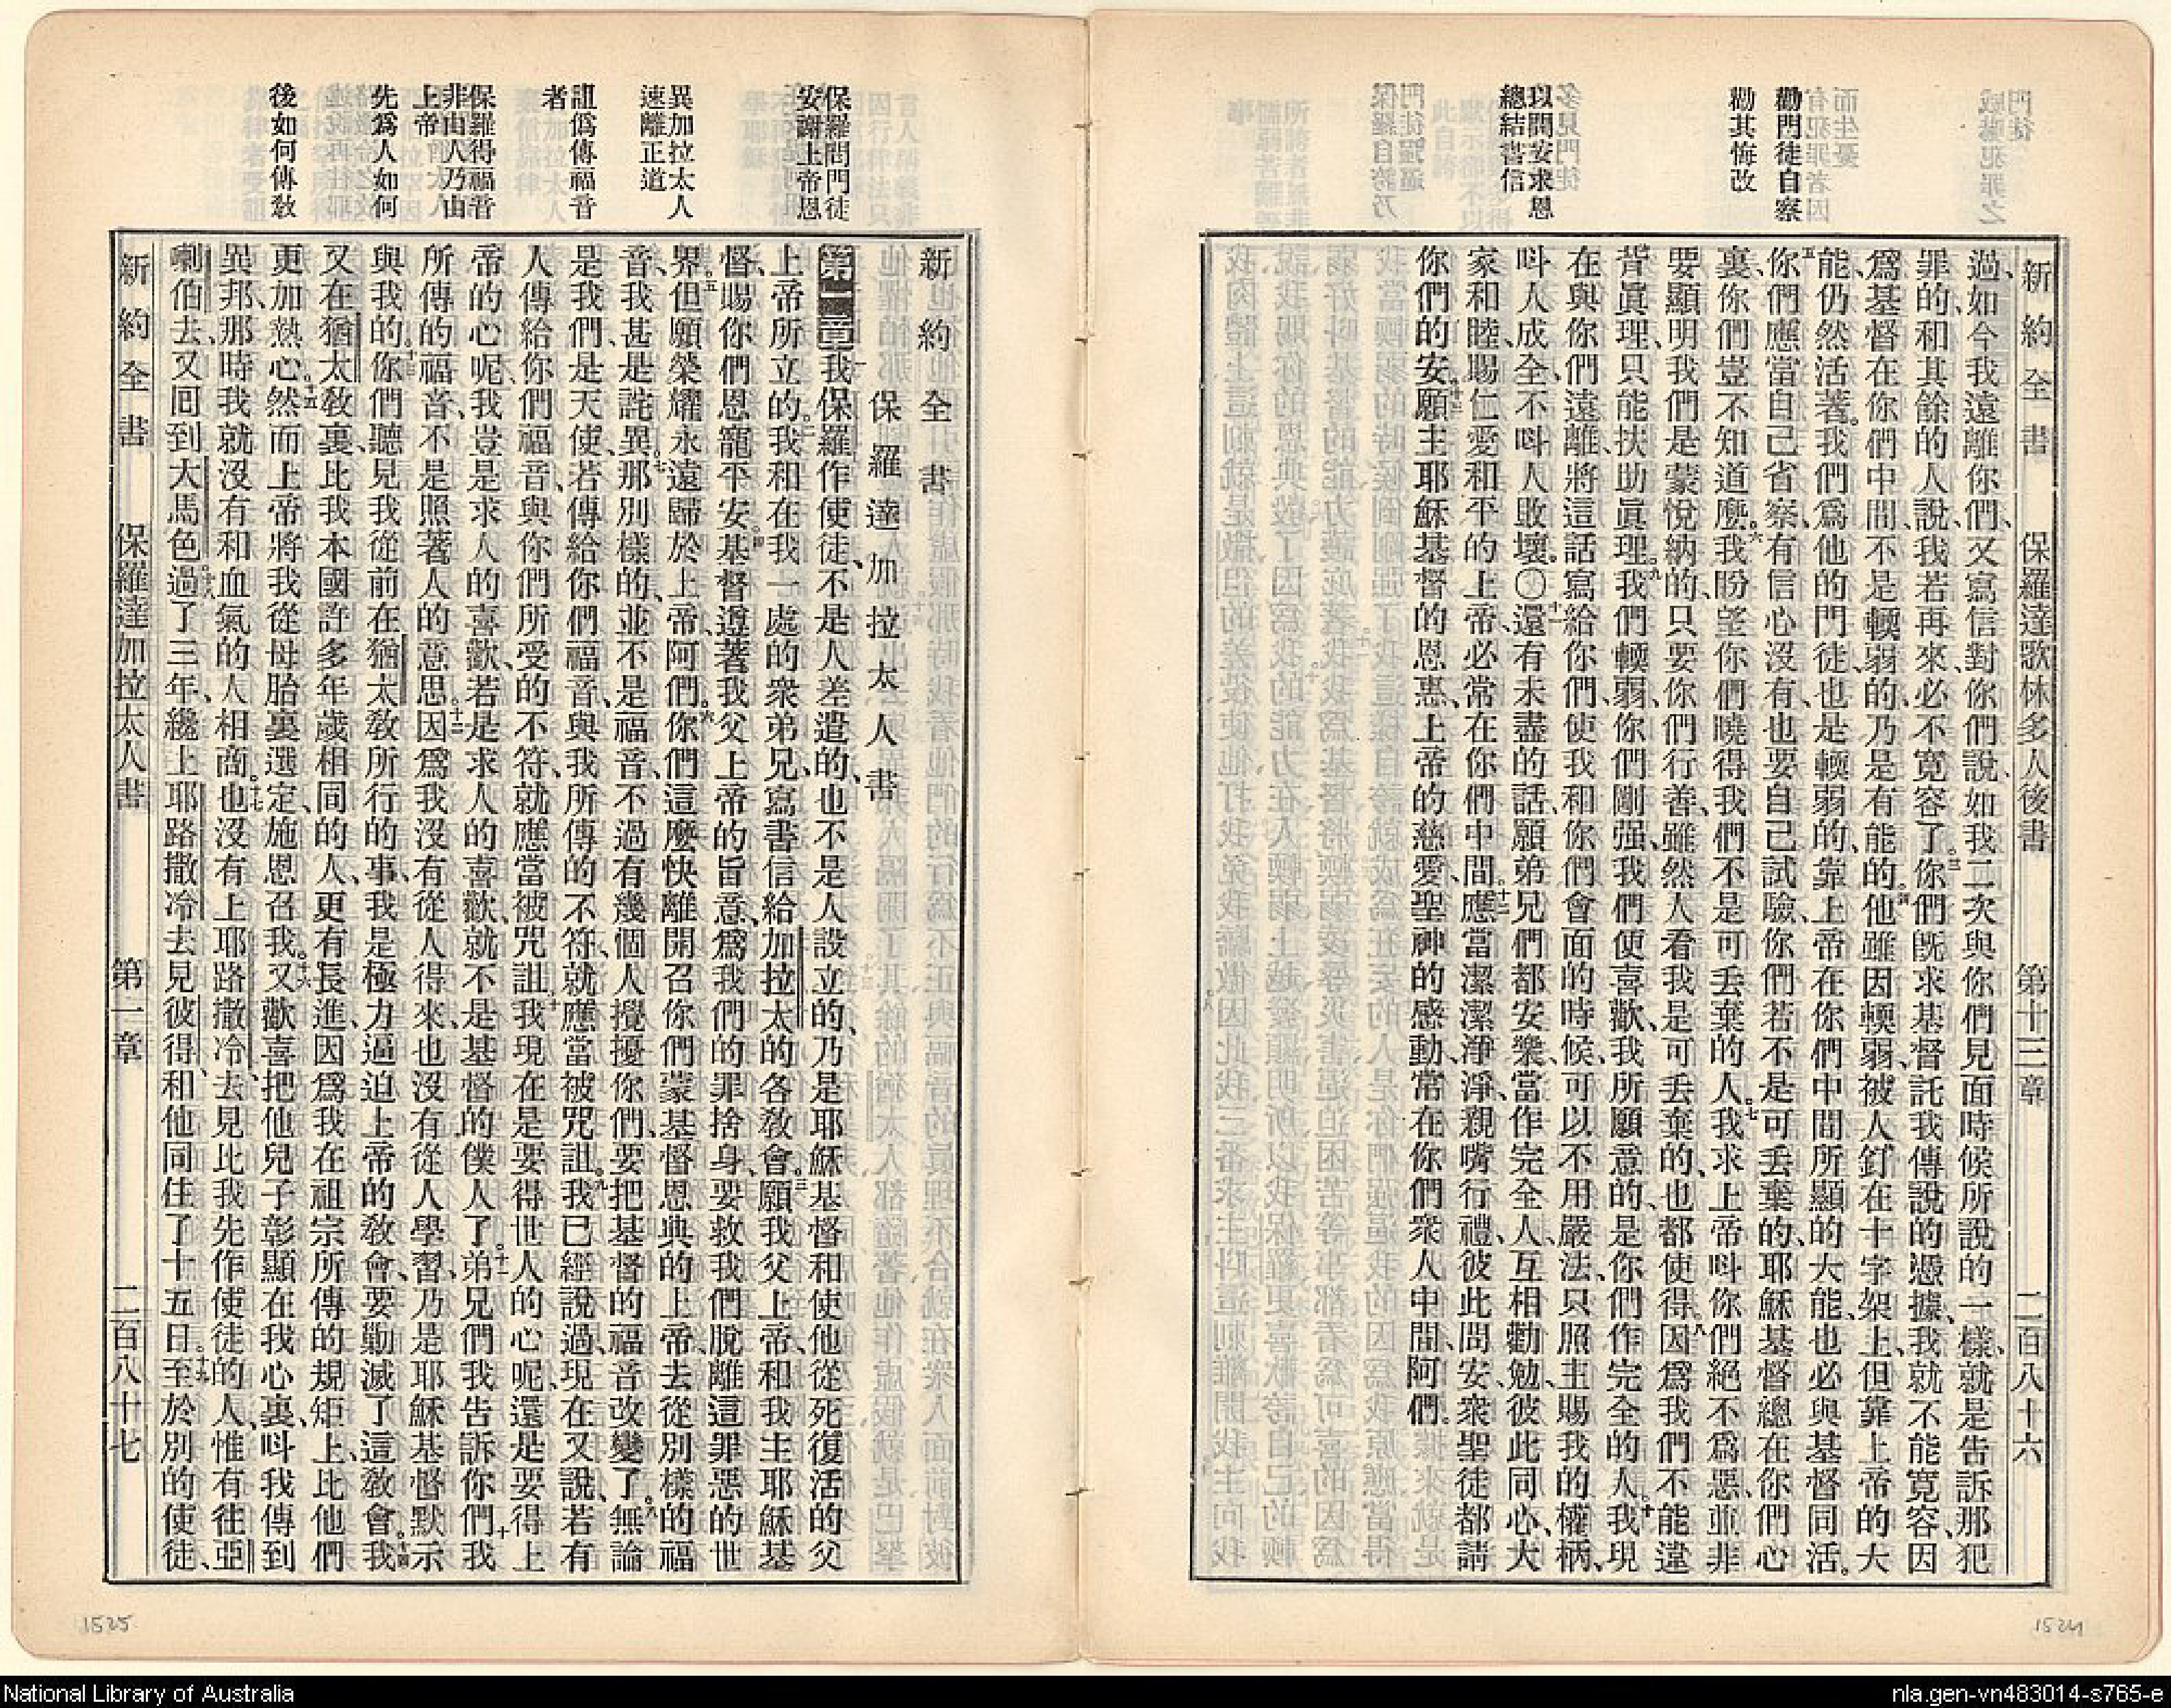 新約全書 保羅達歌林多人後書 第十三章 二百八十六
勸門徒自察
勸其悔改
以問安求恩
總結書信
過、如今我遠離你們、又寫信對你們說、如我二次與你們見面時候所說的一樣、就是告訴那犯
罪的、和其餘的人說、我若再來、必不寬容了。三你們既求基督託我傳說的憑據、我就不能寬容、因
爲基督在你們中間、不是輭弱的、乃是有能的。四他雖因輭弱、被人釘在十字架上、但靠上帝的大
能、仍然活著。我們爲他的門徒、也是輭弱的、靠上帝在你們中間所顯的大能、也必與基督同活。
五你們應當自己省察、有信心沒有、也要自己試驗、你們若不是可丟棄的、耶穌基督總在你們心
裏、你們豈不知道麽。六我盼望你們曉得我們不是可丟棄的人。七我求上帝呌你們絕不爲惡、並非
要顯明我們是蒙悅納的、只要你們行善、雖然人看我是可丟棄的、也都使得。八因爲我們不能違
背眞理、只能扶助眞理。九我們輭弱、你們剛强、我們便喜歡、我所願意的、是你們作完全的人。十我現
在與你們遠離、將這話寫給你們、使我和你們會面的時候、可以不用嚴法、只照主賜我的權柄、
呌人成全、不呌人敗壞。〇十一還有未盡的話、願弟兄們都安樂、當作完全人、互相勸勉、彼此同心、大
家和睦、賜仁愛和平的上帝、必常在你們中間。十二應當潔潔淨淨親嘴行禮、彼此問安、衆聖徒都請
你們的安。十三願主耶穌基督的恩惠、上帝的慈愛、聖神的感動、常在你們衆人中間、阿們。
保羅問門徒
安謝上帝恩
異加拉太人
速離正道
詛僞傳福音
者
保羅得福音
非由人乃由
上帝
先爲人如何
後如何傳敎
新約全書
保羅達加拉太人書
第一章一我保羅作使徒、不是人差遣的、也不是人設立的、乃是耶穌基督、和使他從死復活的父
上帝所立的。二我和在我一處的衆弟兄、寫書信給加拉太的各敎會。三願我父上帝、和我主耶穌基
督、賜你們恩寵平安。四基督遵著我父上帝的旨意、爲我們的罪捨身、要救我們脫離這罪惡的世
界。五但願榮耀永遠歸於上帝、阿們。六你們這麽快離開召你們蒙基督恩典的上帝、去從別樣的福
音、我甚是詫異。七那別樣的、並不是福音、不過有幾個人攪擾你們、要把基督的福音改變了。八無論
是我們、是天使、若傳給你們福音、與我所傳的不符、就應當被咒詛。九我已經說過、現在又說、若有
人傳給你們福音、與你們所受的不符、就應當被咒詛。十我現在是要得世人的心呢、還是要得上
帝的心呢、我豈是求人的喜歡、若是求人的喜歡、就不是基督的僕人了。十一弟兄們、我告訴你們、我
所傳的福音、不是照著人的意思。十二因爲我沒有從人得來、也沒有從人學習、乃是耶穌基督默示
與我的。十三你們聽見我從前在猶太敎所行的事、我是極力逼迫上帝的敎會、要勦滅了這敎會。十四我
又在猶太敎裏、比我本國許多年歲相同的人、更有長進、因爲我在祖宗所傳的規矩上、比他們
更加熱心。十五然而上帝將我從母胎裏選定、施恩召我。十六又歡喜把他兒子彰顯在我心裏、呌我傳到
異邦、那時我就沒有和血氣的人相商。十七也沒有上耶路撒冷、去見比我先作使徒的人、惟有往亞
喇伯去、又回到大馬色。十八過了三年、纔上耶路撒冷去見彼得、和他同住了十五日。十九至於別的使徒、
新約全書 保羅達加拉太人書 第一章 二百八十七
1525
1524
National Library of Australia
nla.gen-vn483014-s765-e